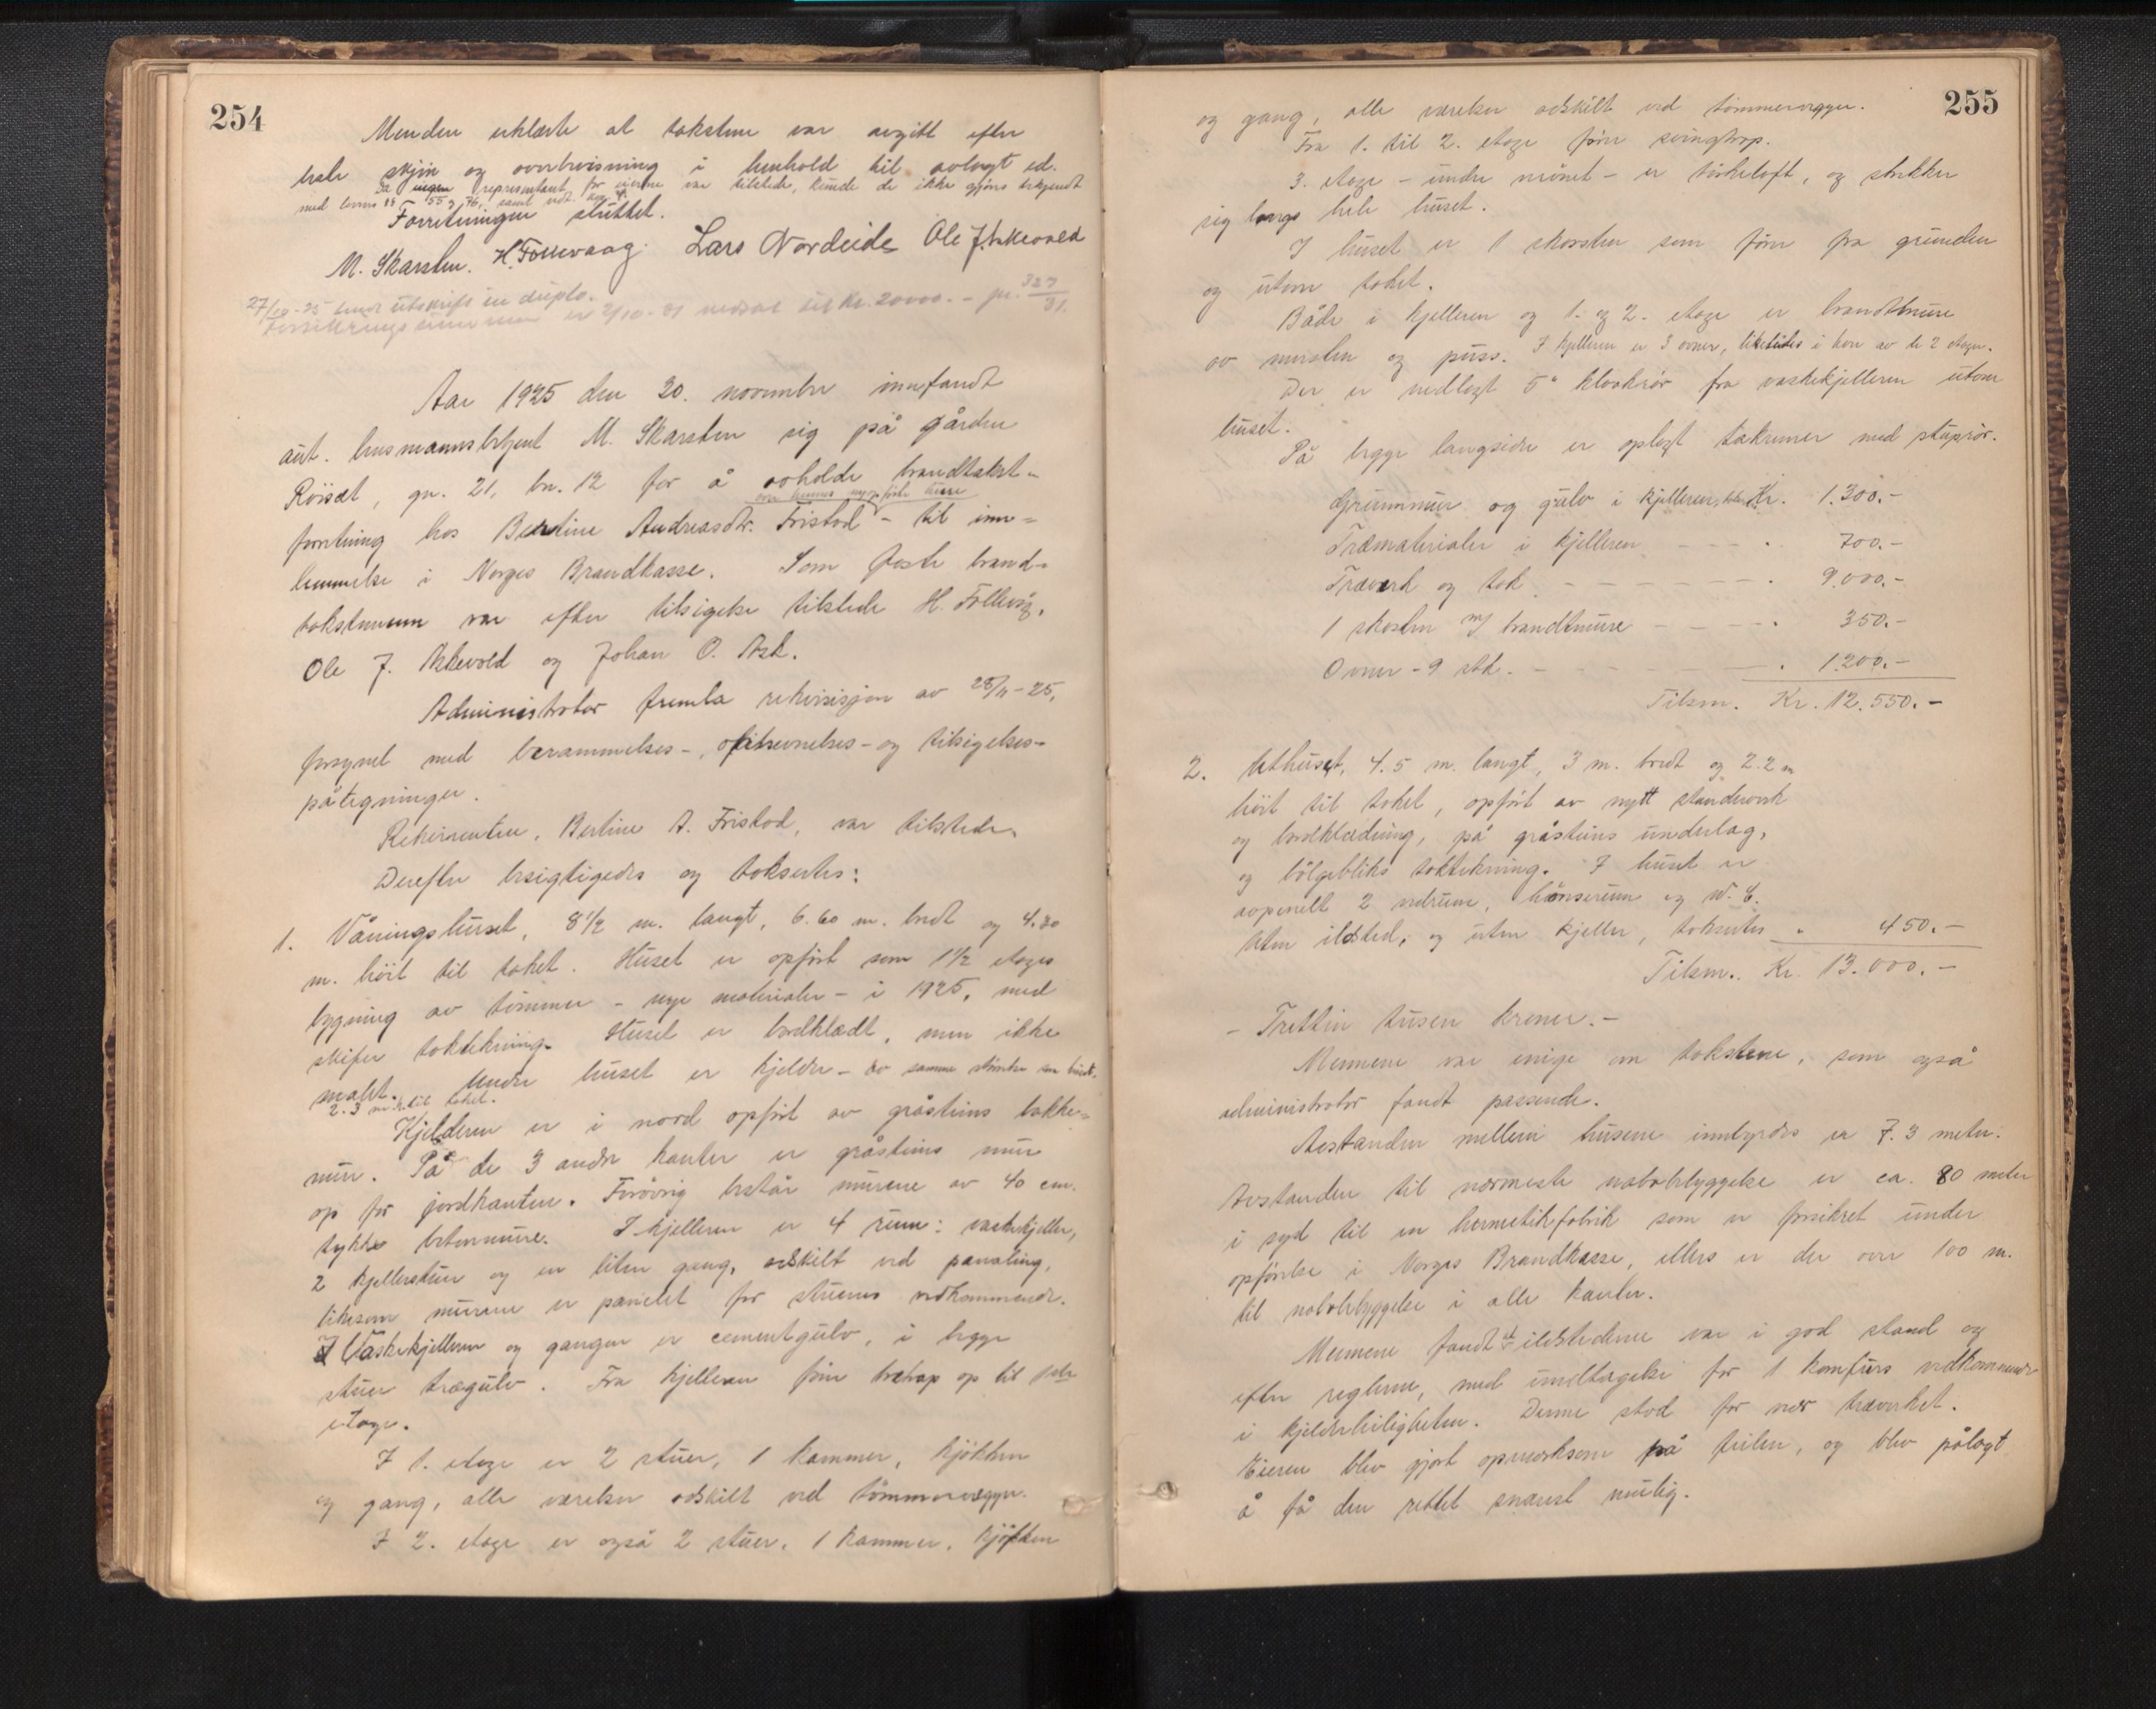 254
Menden erklærte at takstene var avgitt efter
beste skjøn og overbevisning i henhold til avlagt ed.
Da ingen representant for eierne var tilstede, kunde de ikke gjøres bekjendt
med lovens §§ 55 og 76, samt
Forretningen sluttet.
M. Skarsten. H. Follevaag. Lars Nordeide Ole J. Askevold
27/10-25 sendt utskrift in duplo.
Forsikringssummen er 2/10-31 nedsat til Kr. 20000.- jnr. 327/31.
Aar 1925 den 30. november innfandt
aut. lensmannsbetjent M. Skarsten sig på gården
Röisæt, gn. 21, bn. 12 for å avholde brandtakst-
over hennes nyopførte huse
forretning hos Bertine Andreasdtr. Fristad - til inn-
lemmelse i Norges Brandkasse. Som faste brand-
takstmenn var efter tilsigelse tilstede H. Follevåg,
Ole J. Askevold og Johan O. Ask.
Administrator fremla rekvisisjon av 28/11-25,
forsynet med berammelses-, opnevnelses- og tilsigelses-
påtegninger.
Rekvirenten, Bertine A. Fristad, var tilstede.
Derefter besigtigedes og takseertes:
1. Våningshuset, 8 1/2 m. langt, 6.60 m. bredt og 4.30
m. höit til taket. Huset er opfört som 1 1/2 etages
bygning av tömmer - nye materialer - i 1925, med
skifer taktekning. Huset er bordklædt, men ikke
malt. Under huset er kjelder - av samme størrelse som huset.
2.3 m. h. til taket.
Kjelderen er i nord opfört av gråsteins bakke-
mur. På de 3 andre kanter er gråsteins mur
op for jordkanten. Forövrig består murene av 40 cm.
tykke betonmure. I kjelleren er 4 rum: vaskekjeller,
2 kjellerstuer og en liten gang, adskilt ved paneling,
likesom murene er panelet for stuenes vedkommende.
I Vaskekjelleren og gangen er cementgulv, i begge
stuer trægulv. Fra kjelleren förer tretrap op til 1ste
etage.
I 1. etage er 2 stuer, 1 kammer, kjökken
og gang, alle værelser adskilt ved tömmervegger.
I 2. etage er også 2 stuer, 1 kammer, kjökken
255
og gang, alle værelser adskilt ved tömmervegger.
Fra 1. til 2. etage förer svingtrap.
3. etage - under mönet - er törkeloft, og strekker
sig langs hele huset.
I huset er 1 skorsten som förer fra grunden
og utover taket.
Både i kjelleren og 1. og 2. etage er brandtmure
av murstein og puss. I kjelleren er 3 ovner, likeledes i hver av de 2 etager.
Der er nedlagt 5" kloakrör fra vaskekjelleren utover
huset.
På begge langsider er oplagt takrenner med stuprör.
Grunnmur og gulv i kjelleren, Kr. 1.300.-
Træmaterialer i kjelleren - - - " 700.-
Træverk og tak - - - - - - - " 9.000.-
1 skorsten m/ brandtmure - - - - " 350.-
Ovner - 9 stk. - - - - - - " 1.200.-
Tilsm. Kr. 12.550.-
2. Uthuset, 4.5 m. langt, 3 m. bredt og 2.2 m
höit til taket, opfört av nytt standverk
og bordklædning, på gråsteins underlag,
og bölgebliks taktekning. I huset er
avpanelt 2 vedrum, hönserum og W.C.
Uten ildsted, og uten kjeller, takseertes " 450.-
Tilsm. Kr. 13.000.-
- Trettin tusen kroner.-
Mennene var enige om takstene, som også
administrator fandt passende.
Avstanden mellem husene innbyrdes er 7.3 meter.
Avstanden til nærmeste nabobebyggelse er ca. 80 meter
i syd til en hermetikfabrik som er forsikret under
opförelse i Norges Brandkasse, ellers er der over 100 m.
til nabobebyggelse i alle kanter.
Mennene fandt at ildstederne var i god stand og
efter reglerne, med undtagelse for 1 komfurs vedkommende
i kjelderleiligheten. Denne stod for nær træverket.
Eieren blev gjort opmerksom på feilen, og blev pålagt
å få den rettet snarest mulig.